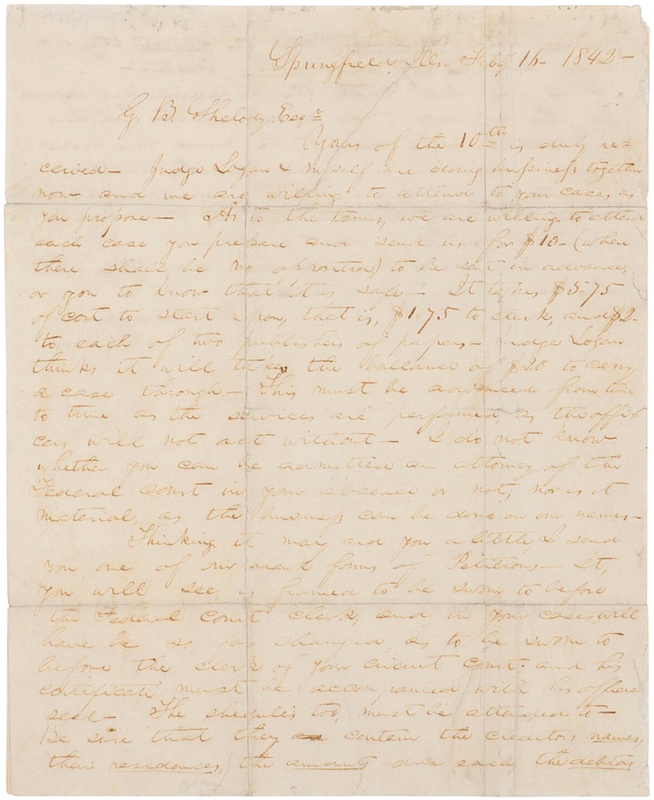 Springfield Ills. Feby 16- 1842-
G. B. Sheledy, Esqr.
Yours of the 10th is duly re-
ceived- Judge Logan & myself are doing business together
now and we are willing to attend to your cases as
you propose- As to the terms, we are willing to attend
each case you prepare and send us for $10- (when
there shall be no opposition) to be sent in advance,
or you to know that it is safe- It takes $5.75
of cost to start upon, that is, $1.75 to clerk, and $2-
to each of two publishers of papers- Judge Logan
thinks it will take the ballance of $20 to carry
a case through- This must be advanced from time
to time as the services are performed as the offi
cers will not act without- I do not know
whether you can be admitted an attorney of the
Federal court in your absence or not; nor is it
material, as the business can be done in our names-
Thinking it may aid you a little, I send
you one of our blank forms of Petitions- It,
you will see, is framed to be sworn to before
the Federal court clerk, and, in your cases, will
have be so far changed, as to be sworn to
before the clerk of your circuit court; and his
certificate must be accompanied with his official
seal- The schedules too, must be attended to-
Be sure that they contain the creditors names,
their residences, the amounts due each, the debtors